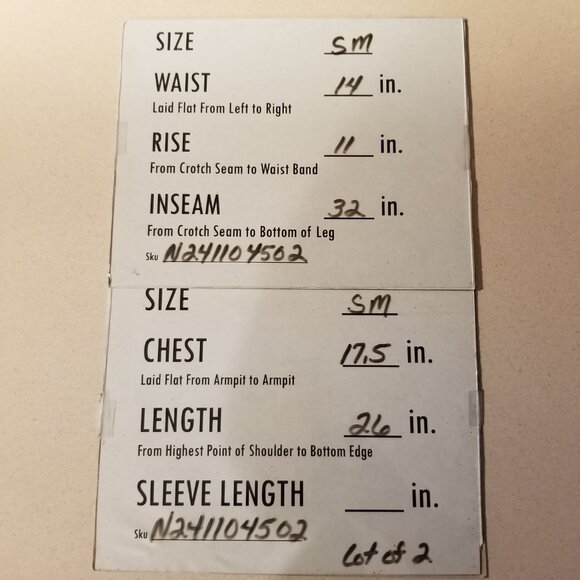 SIZE SM
WAIST 14 in.
Laid Flat From Left to Right
RISE 11 in.
From Crotch Seam to Waist Band
INSEAM 32 in.
From Crotch Seam to Bottom of Leg
Sku N241104502
SIZE SM
CHEST 17.5 in.
Laid Flat From Armpit to Armpit
LENGTH 26 in.
From Highest Point of Shoulder to Bottom Edge
SLEEVE LENGTH in.
Sku N241104502
Lot of 2